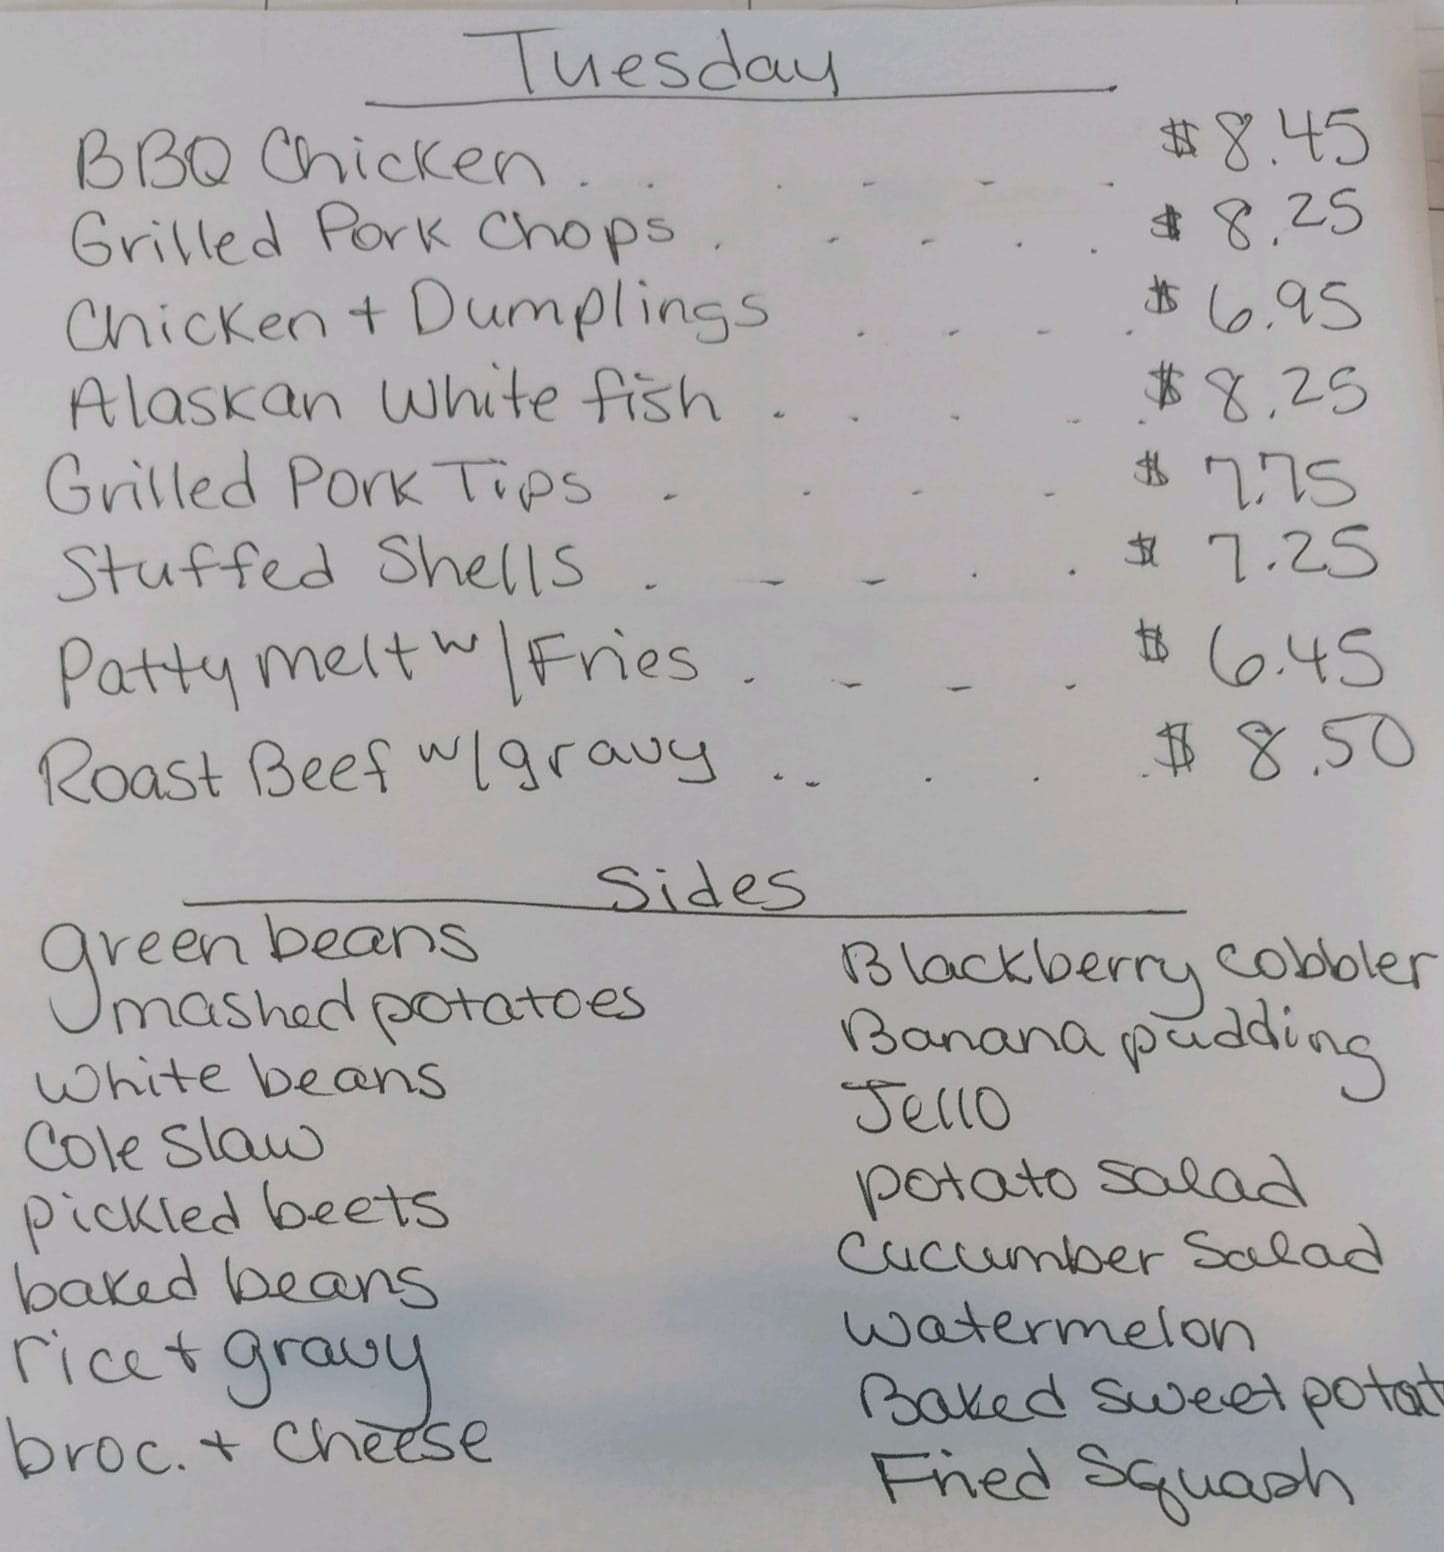 Tuesday
BBQ Chicken . . . - - . $8.45
Grilled Pork Chops . - - . . $8.25
Chicken + Dumplings . - - . $6.95
Alaskan White fish . . . - . $8.25
Grilled Pork Tips - . - - $7.75
Stuffed Shells . - - . . $7.25
Patty melt w/Fries . - - . $6.45
Roast Beef w/gravy . . . . . $8.50
Sides
green beans
mashed potatoes
white beans
Cole Slaw
pickled beets
baked beans
rice + gravy
broc. + cheese
Blackberry cobbler
Banana pudding
Jello
potato salad
Cucumber Salad
watermelon
Baked sweet potat
Fried Squash